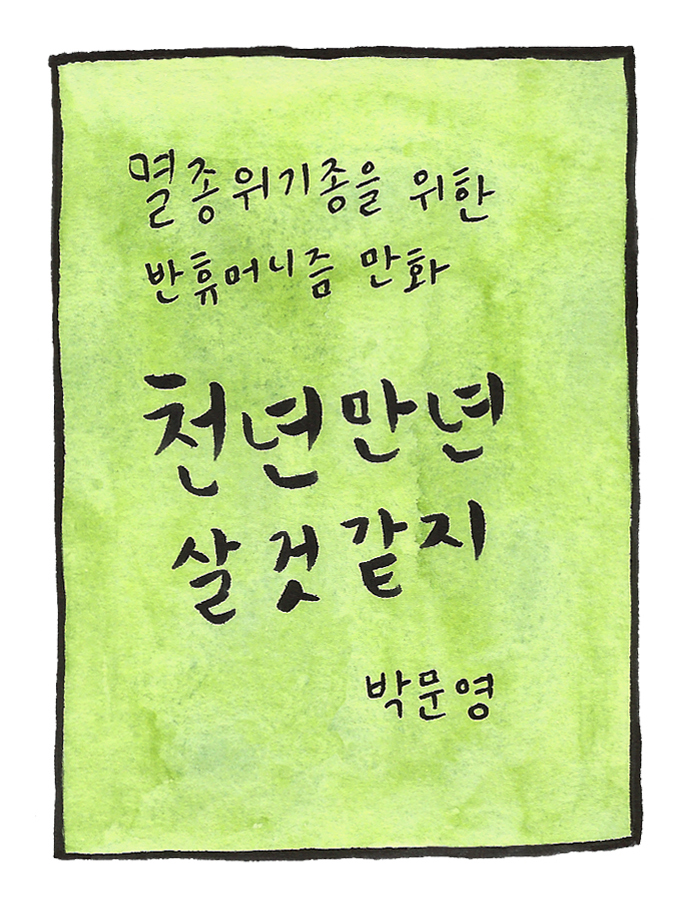 멸종위기종을 위한
반휴머니즘 만화
천년만년
살것같지
박문영